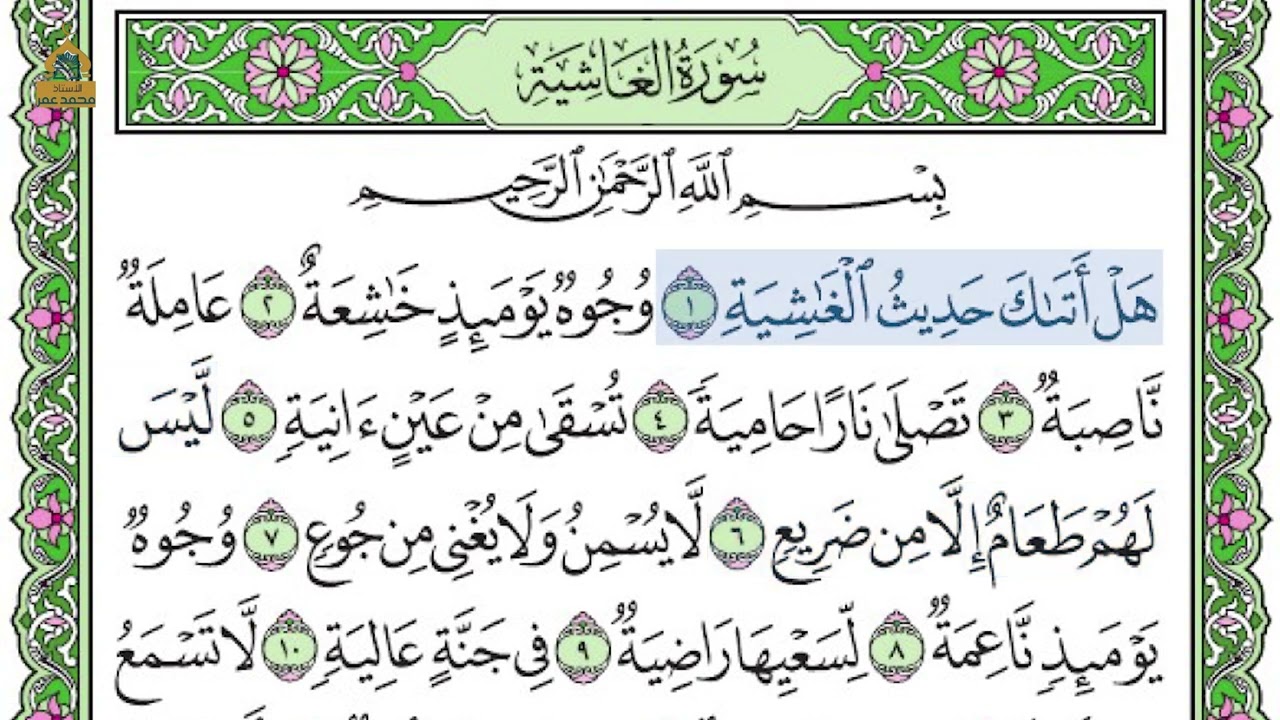 الأستاذ
محمد عمر
سُورَةُ الغَاشِيَةِ
بِسْمِ ٱللَّهِ ٱلرَّحْمَٰنِ ٱلرَّحِيمِ
هَلْ أَتَىٰكَ حَدِيثُ ٱلْغَٰشِيَةِ ١ وُجُوهٌ يَوْمَئِذٍ خَٰشِعَةٌ ٢ عَامِلَةٌ
نَّاصِبَةٌ ٣ تَصْلَىٰ نَارًا حَامِيَةً ٤ تُسْقَىٰ مِنْ عَيْنٍ ءَانِيَةٍ ٥ لَّيْسَ
لَهُمْ طَعَامٌ إِلَّا مِن ضَرِيعٍ ٦ لَّا يُسْمِنُ وَلَا يُغْنِى مِن جُوعٍ ٧ وُجُوهٌ
يَوْمَئِذٍ نَّاعِمَةٌ ٨ لِّسَعْيِهَا رَاضِيَةٌ ٩ فِى جَنَّةٍ عَالِيَةٍ ١٠ لَّا تَسْمَعُ